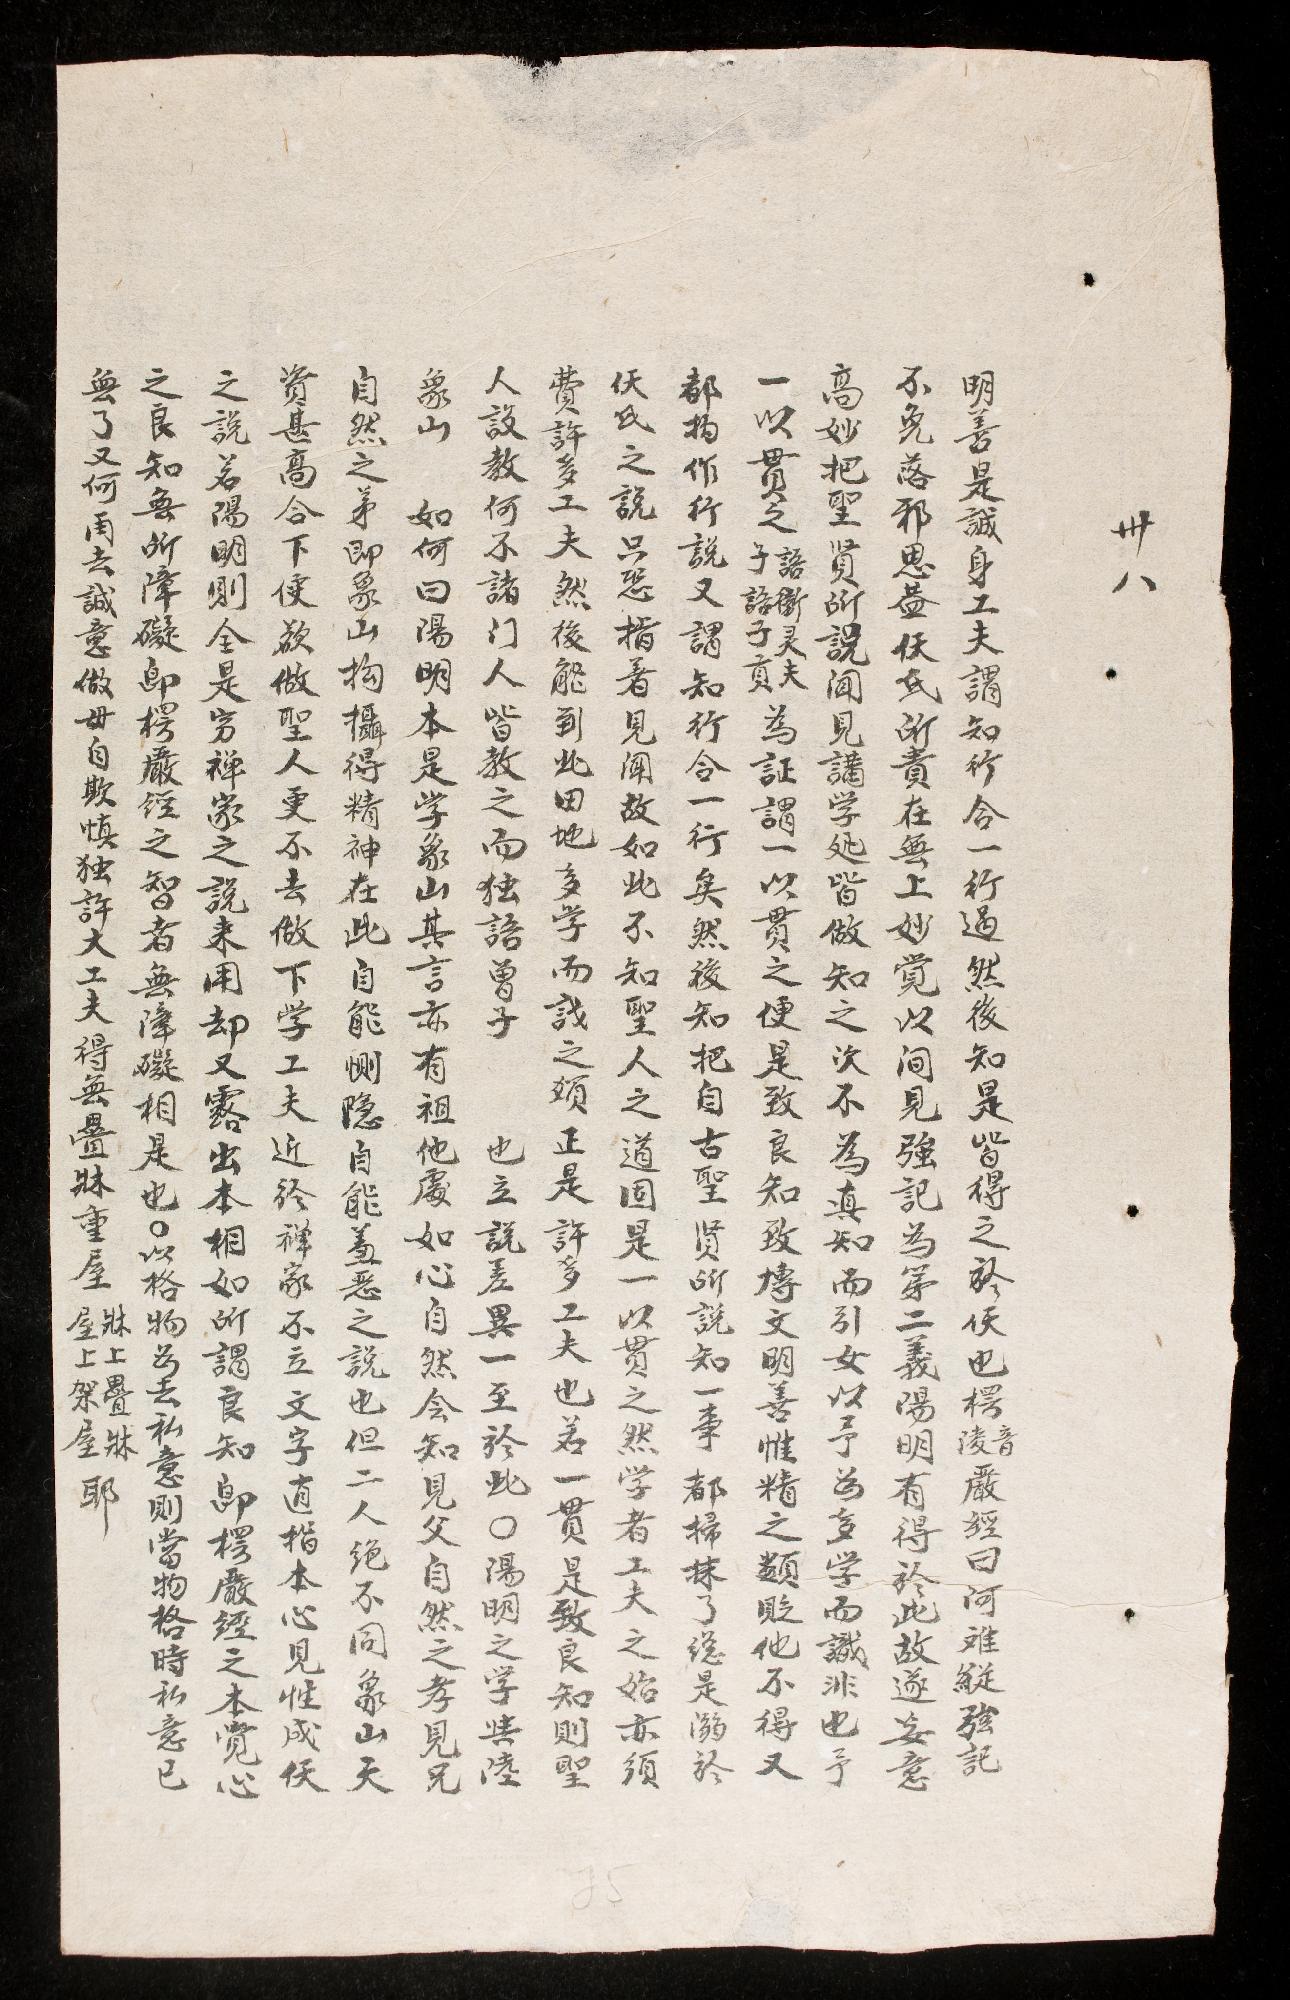 卅八
明善是誠身工夫謂知行合一行過然後知是皆得之於仸也楞音陵嚴經曰阿难縱強記
不免落邪思益仸氏所責在無上妙覚以闻見強記為第二義陽明有得於此故遂妄意
高妙把聖贤所説闻見講学処皆做知之次不為真知而引女以予為多学而識非也予
一以貫之語衛灵夫子語子貢為証謂一以貫之便是致良知致博文明善惟精之類貶他不得又
都拘作行説又謂知行合一行矣然後知把自古聖贤所説知一事都掃抹了総是溺於
仸氏之説只恐指著見闻故如此不知聖人之道固是一以貫之然学者工夫之始亦須
費許多工夫然後能到此田地多学而識之類正是許多工夫也若一貫是致良知則聖
人設教何不諸门人皆教之而独語曾子 也立説差異一至於此〇陽明之学與陸
象山 如何曰陽明本是学象山其言亦有祖他處如心自然会知見父自然之孝見兄
自然之弟即象山拘攝得精神在此自能惻隐自能羞惡之説也但二人絶不同象山天
資甚高合下便欲做聖人更不去做下学工夫近於禅家不立文字直指本心見性成仸
之説若陽明則全是窃禅家之説来用却又露出本相如所謂良知即楞嚴經之本覚心
之良知無所障礙即楞嚴經之智者無障礙相是也〇以格物為去私意則當物格時私意已
無了又何用去誠意做毋自欺慎独許大工夫得無疊牀重屋牀上疊牀屋上架屋耶
25